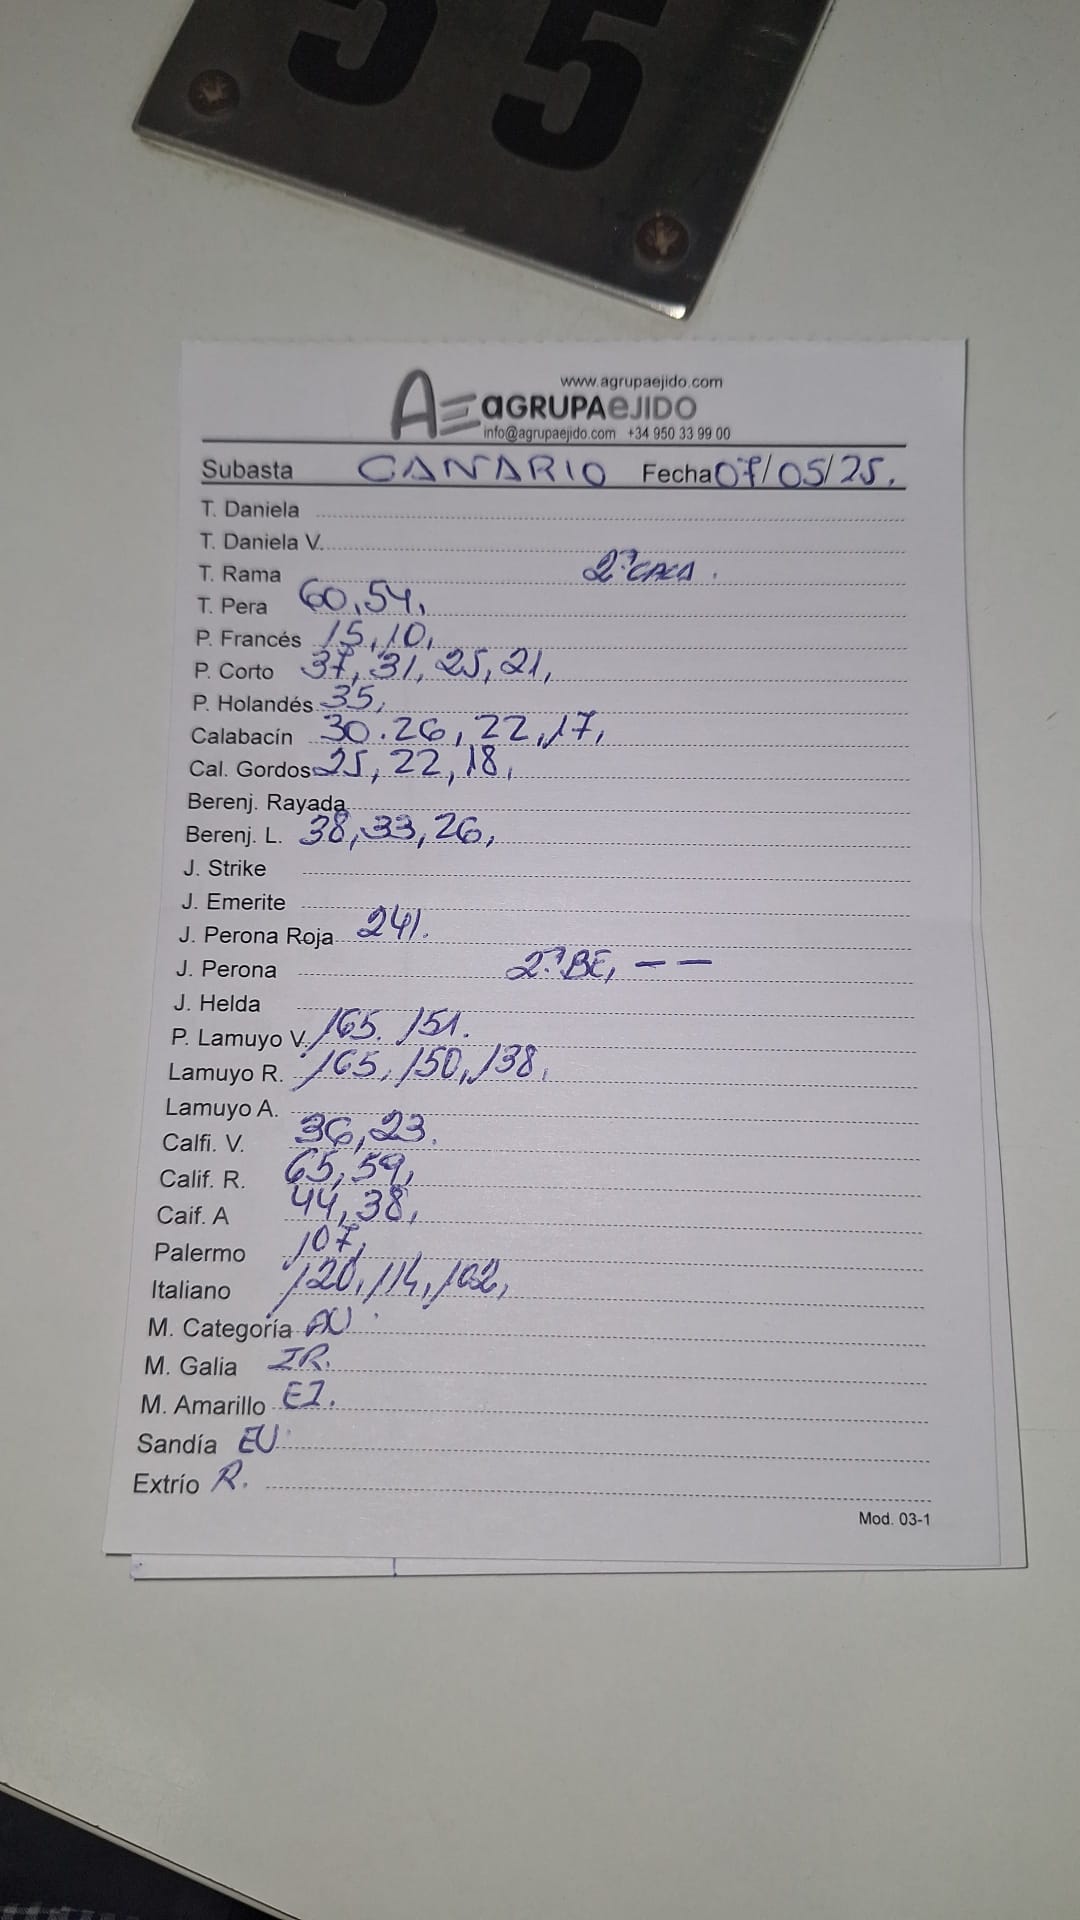 55
www.agrupaejido.com
AE aGRUPAeJIDO
info@agrupaejido.com +34 950 33 99 00
Subasta CANARIO Fecha 07/05/25.
T. Daniela
T. Daniela V.
T. Rama 2ª CACA.
T. Pera 60, 54,
P. Francés 15, 10,
P. Corto 37, 31, 25, 21,
P. Holandés 35,
Calabacín 30. 26, 22, 17,
Cal. Gordos 25, 22, 18,
Berenj. Rayada
Berenj. L. 38, 33, 26,
J. Strike
J. Emerite
J. Perona Roja 241.
J. Perona 2ª BE, — —
J. Helda
P. Lamuyo V. 165. 151.
Lamuyo R. 165, 150, 138,
Lamuyo A.
Calfi. V. 36, 23.
Calif. R. 65, 59,
Caif. A 44, 38,
Palermo 107,
Italiano 120, 114, 102,
M. Categoría AU
M. Galia IR.
M. Amarillo EJ.
Sandía EU
Extrío R.
Mod. 03-1